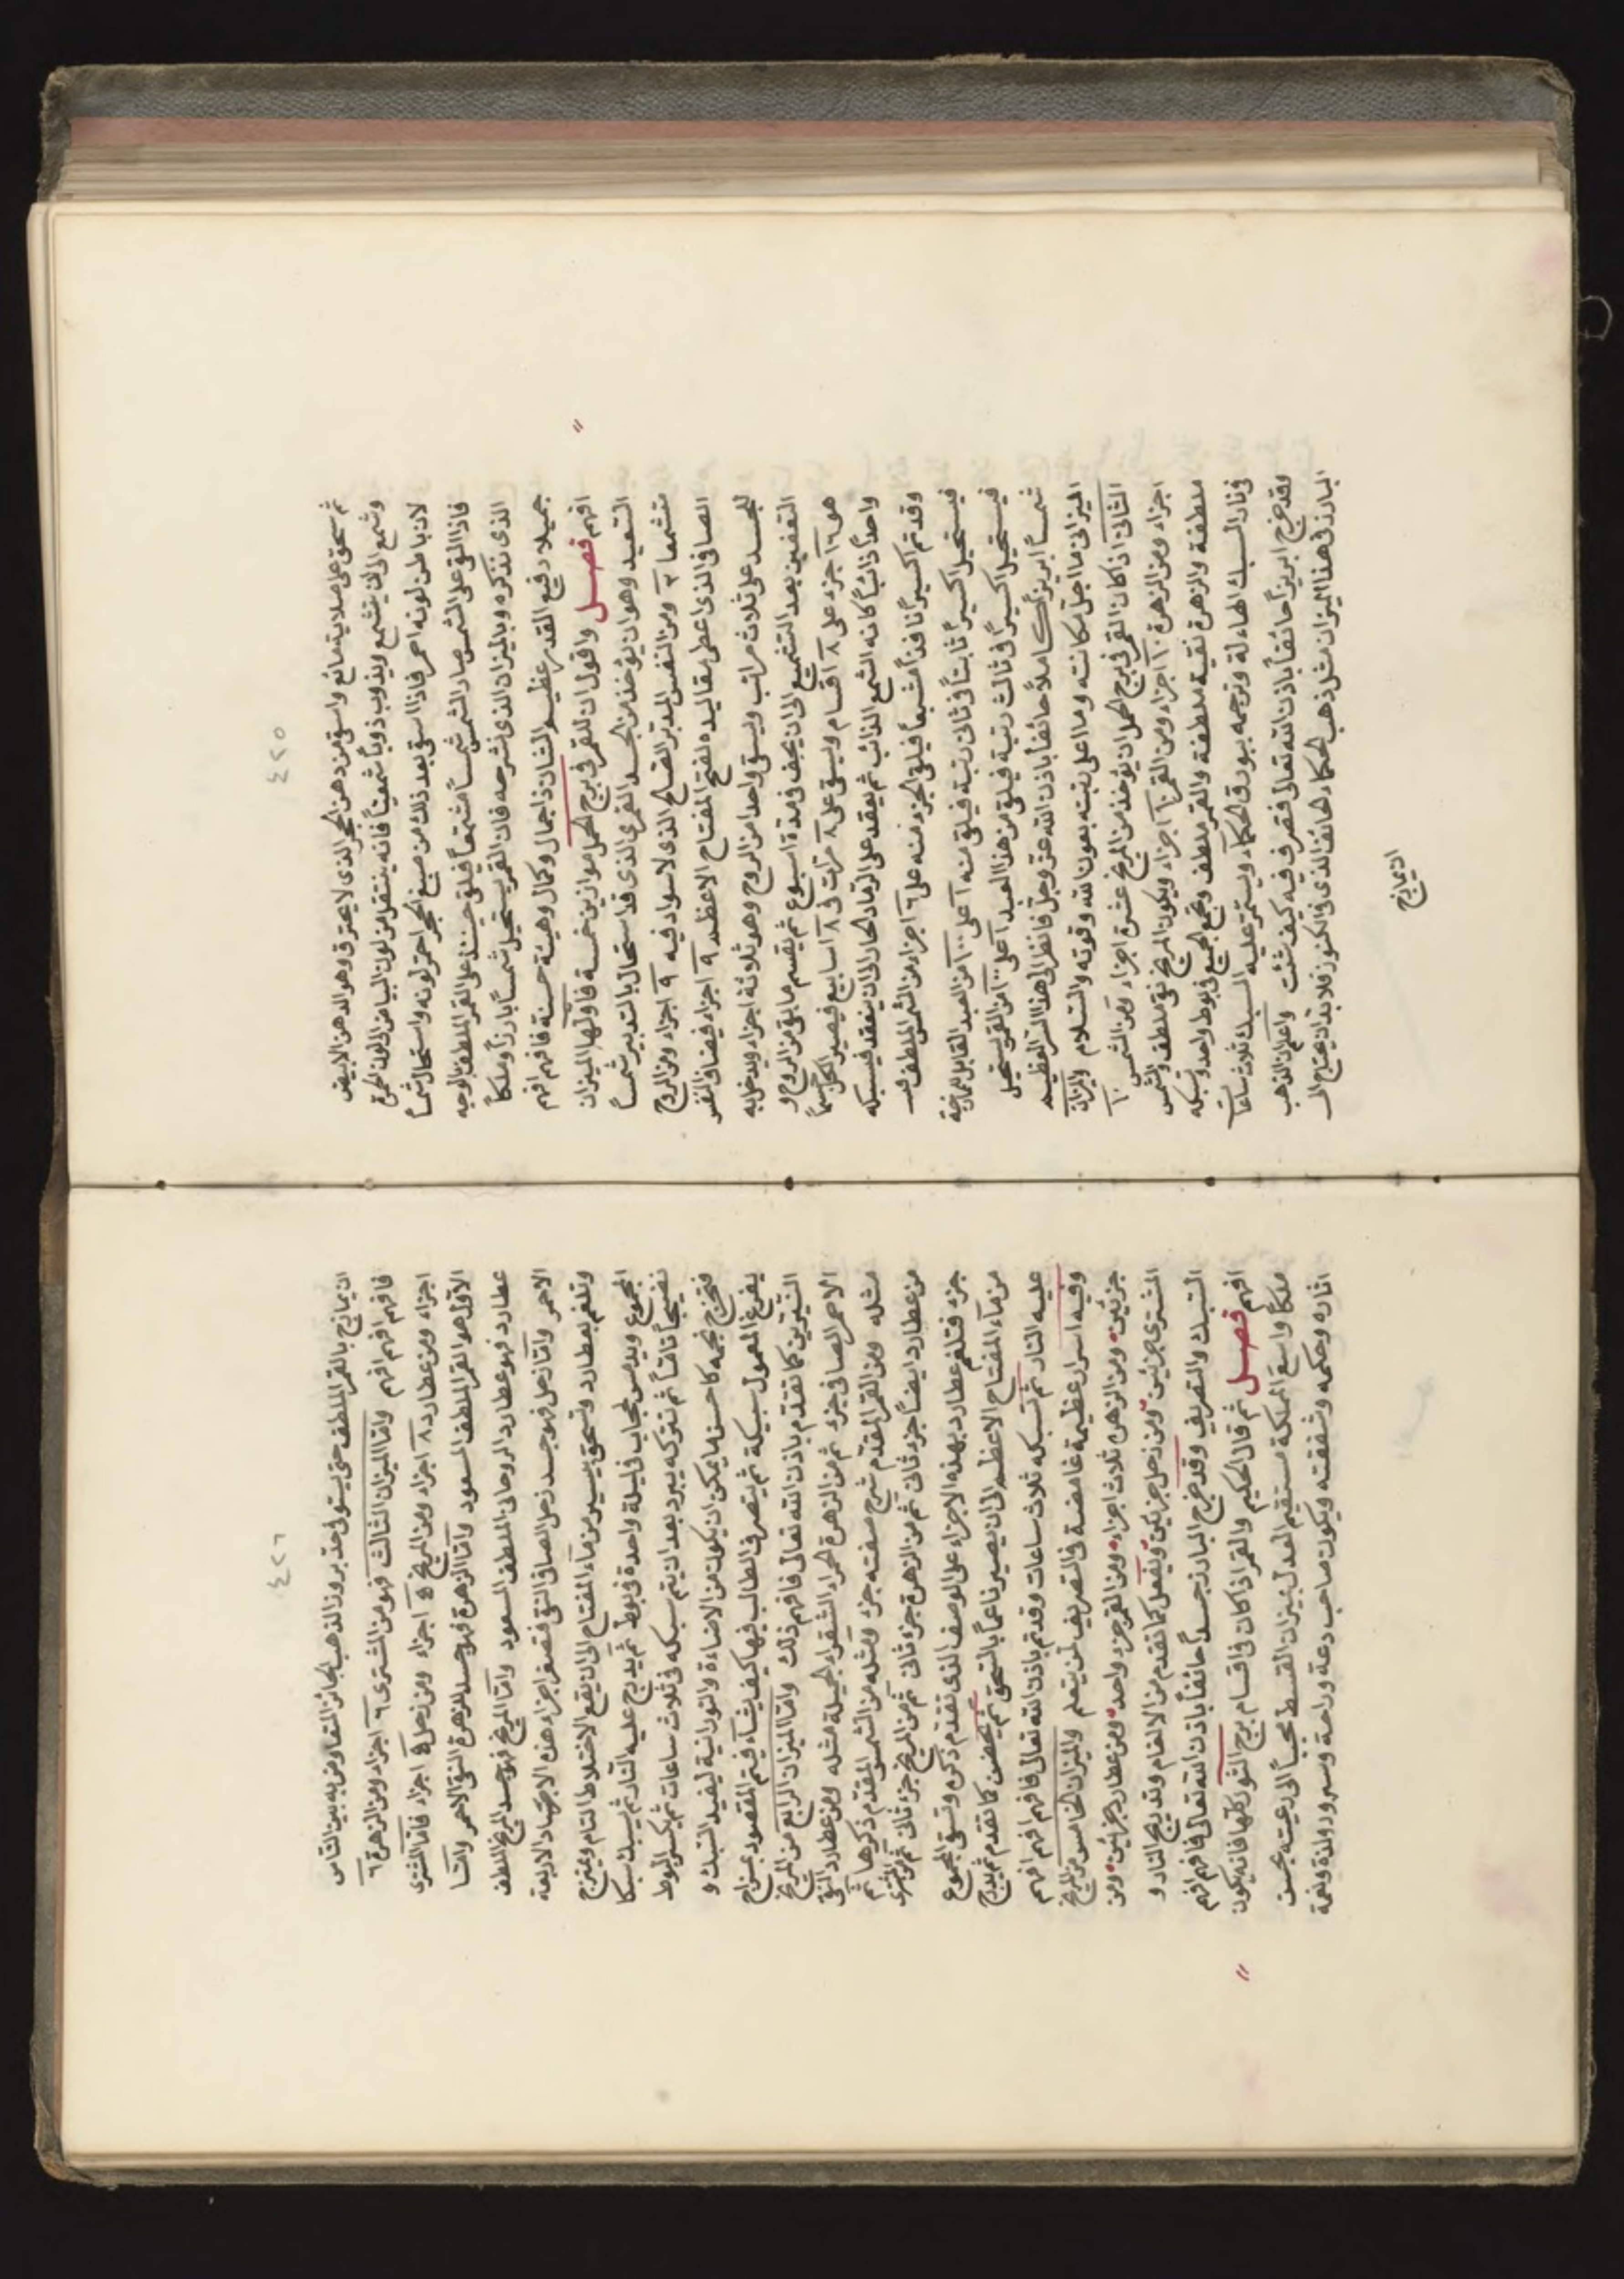 ٤٢٥
ثم يسحق على صلاية مانع واسق من دهن الحجر الذى لا يحترق وهو الدهن الابيض
وشمع الى ان يتشمع ويذوب ذوباً شمعياً فانه ينتقل من لون البياض الى لون الحمرة
لان باطن لونه احمر فاذا سقى بعد ذلك من صبغ الحجر احمر لونه واستحال شمساً
فاذا القى على الشمس صار الشمس شمساً مشتمعاً فيلقى حينئذ على القمر الملطف بالوجه
الذى نذكره وبالميزان الذى نشرحه فان القمر يستحيل شمساً بارزاً وملكاً
جميلا رفيع القدر عظيم الشان ذا جمال وكمال وهيئة حسنة فافهم افهم
افهم فصل واقول ان للقمر فى برج الحمل موازين خمسة فاولها الميزان
التعبيد وهو ان يؤخذ من الجسد القمرى الذى قد استحال بالتدبير شمساً
متشمعا ٣ ومن النفس المدبر القسام الذى لا سواد فيه ٩ اجزاء ومن الروح
الصافى الذى اعطى مقاليده لفتح المفتاح الاعظم ٩ اجزاء فيضاف النفس
للجسد على ثلاث مراتب ويسقى واحدا من الروح وهو ثلاثة اجزاء ويدخل به
التعفين بعد التشميع الى ان يجف فى مدة اسبوع ثم يقسم ما بقى من الروح و
هو ١٦ جزء على ٨ اقسام ويسقى على ٨ مرات فى ٨ اسابيع فيصير الكل جسماً
واحداً ذائباً كانه الشمع الذائب ثم يعقد على الرماد الحار الى ان ينعقد فيسبكه
وقد تم اكسيراً نافذاً مشبعاً فيلقى الجزء منه على ٦ اجزاء من الشمس الملطف
فيستحيل اكسيراً ثابتاً فى ثانى رتبة فيلقى منه ١ على ١٠٠ من العبد القابل للممازجة
فيستحيل اكسيراً فى ثالث رتبة فيلقى من هذا العبد ١ على ١٠٠ من القمر يستحيل
شمساً ابريزاً كاملاً خائفاً باذن الله عز وجل فانظر الى هذا السر العظيم
الميزانى ما اجل مكانته وما اعلى رتبته بعون الله وقوته والسلام والميزان
الثانى اذا كان القمر فى برج الحمل ان يؤخذ من المريخ عشرة اجزاء ومن الشمس ١٠
اجزاء ومن الزهرة ١٠ اجزاء ومن القمر ١٠ اجزاء ويكون المريخ نقى ملطف والشمس
ملطفة والزهرة نقية ملطفة والقمر ملطف وتجمع الجميع فى بوط واحد وتسبكه
فى نار السبك الهائلة وترجمه ببورق الحكماء ويستمر عليه السبك ثلاث ساعات
لقد خرج ابريزاً خائفاً باذن الله تعالى فتصرف فيه كيف شئت واعلم ان الذهب
البارز فى هذا الميزان مثل ذهب الحكماء الخائف الذى فى الكنوز فلا بد ان يحتاج الى
ان يمازج
٤٢٦
ان يمازج بالقمر الملطف حتى يستوى فى حد بروز الذهب الجائز المتعاوض به بين الناس
فافهم افهم افهم واما الميزان الثالث فهو من المشترى ٦ اجزاء ومن الزهرة ٦
اجزاء ومن عطارد ٨ اجزاء ومن المريخ ٥ اجزاء ومن زحل ٥ اجزاء فاما المشترى
الاول هو القمر الملطف المسعود واما الزهرة فهو جسد الزهرة النقى الاحمر واما
عطارد فهو عطارد الروحانى الملطف المسعود واما المريخ فهو جسد المريخ الملطف
الاحمر واما زحل فهو جسد زحل الصافى النقى فتصغر اجزاء هذه الاجساد الاربعة
وتلغم بعطارد وتسحق بيسير من ماء المفتاح الى ان يقع الاختلاط التام ويمتزج
المجموع ويدمس بحجاب فى ليلة واحدة فى بوط ثم يدبج عليه النار ثم يسبك سبكا
نضيجاً تاماً ثم تتركه يبرد بعد ان يتم سبكه فى ثلاث ساعات ثم يكسر البوط
فتخرج نجمه كاحسن ما يمكن ان يكون من الاضاءة والنورانية ليفيد السبك و
يفرغ المعمول سبيكة ثم يتصرف الطالب فيها كيف يشاء فيتم المقصود بمزاج
النيرين كما تقدم باذن الله تعالى فافهم ذلك واما الميزان الرابع من المريخ
الاحمر الصافى جزء ثم من الزهرة الحمراء الشقراء الجميلة مثله ومن عطارد النقى
مثله ومن القمر المقدم شرح صفته جزء ومثله من الشمس المقدم ذكرها ثم
من عطارد ايضاً جزء ثانى ثم من الزهرة جزء ثانى ثم من المريخ جزء ثانى ثم من المشترى
جزء فتلغم عطارد بهذه الاجزاء على الوصف الذى تقدم ذكره وتسقى المجموع
من ماء المفتاح الاعظم الى ان يصير ناعماً بالسحق ثم يحضن كما تقدم ثم يدبج
عليه النار ثم تسبكه ثلاث ساعات وقد تم باذن الله تعالى فافهم افهم افهم
وفيه اسرار عظيمة غامضة فى التصريف لمن يتعلم والميزان الخامس من المريخ
جزئين ومن الزهرة ثلاث اجزاء ومن القمر جزء واحد ومن عطارد جزئين ومن
المشترى جزئين ومن زحل جزئين ويفعل كما تقدم من الالغام وتدبيج النار و
السبك والتصريف وقد خرج البارز جسداً خائفاً باذن الله تعالى فافهم افهم
افهم فصل ثم قال الحكيم والقمر اذا كان فى اقسام برج الثور كلها فانه يكون
ملكاً واسع المملكة مستقيم العدل بميزان القسط محبباً الى رعيته بحسن
اثاره وحكمه وشفقته ويكون صاحب دعة وراحة وسرور ولذة ونعمة